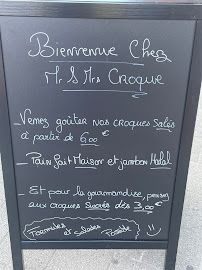 Bienvenue Chez
Mr & Mrs Croque
Venez goûter nos croques Salés
à partir de 6,00 €
- Pain fait Maison et jambon Halal
- Et pour la gourmandise, pensez
aux croques Sucrés dès 3,00 €
Formules et Salades Possible